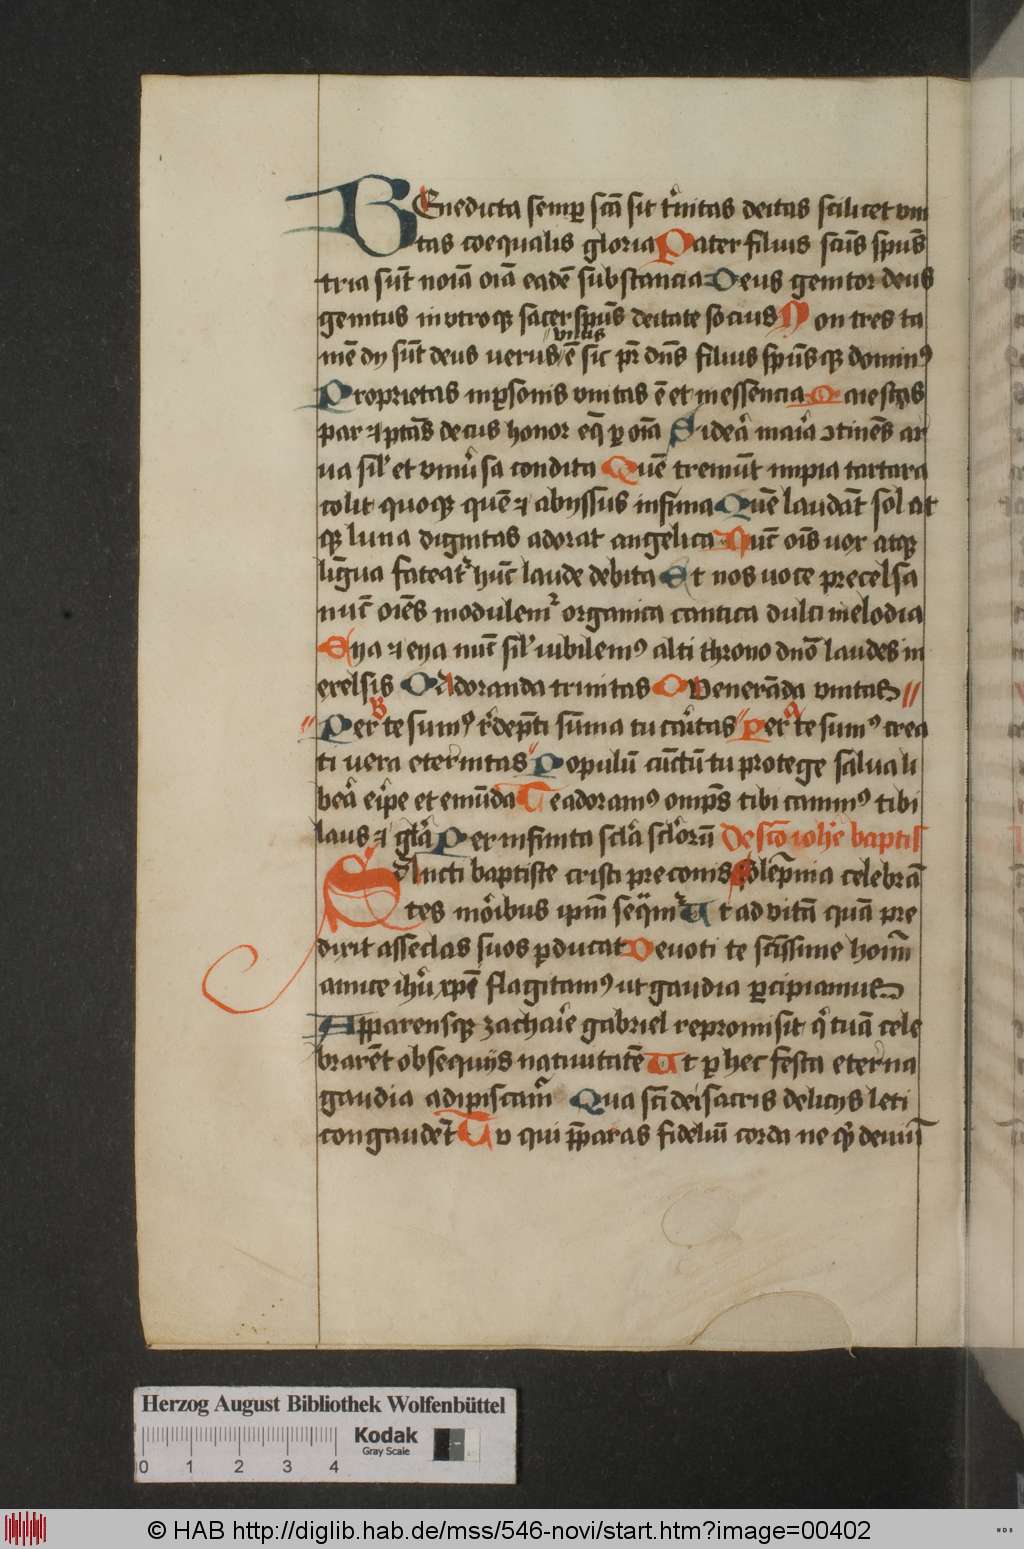 BEnedicta semp̱ scā sit tͥnitas deitas scilicet vni
tas coequalis gloria Pater filius scūs spūs
tria sūt noīa oīa eadē substancia Deus genitor deus
genitus in vtroqꝫ sacer spūs deitate socius Non tres ta
vnus
mē dij sūt deus verus ē sic pr̄ dn̄s filius spūsqꝫ dominꝰ
Proprietas in ꝑsonis vnitas ē et in essencia Maiestas
par ⁊ ptās decus honor eq̄ ꝑ oīa Sideā maīa ↄtinēs ar
ua sil̄ et vniūsa condita Quē tremūt impia tartara
colit quoqꝫ quē ⁊ abyssus infima Quē laudāt sol at
qꝫ luna dignitas adorat angelica Hūc oīs uox atqꝫ
lingua fateat᷑ hūc laude debita Et nos uoce precelsa
nūc oīes modulem᷑ organica cantica dulci melodia
Eya ⁊ eya nūc sil̄ iubilemꝰ alti throno dn̄o laudes in
excelsis O Adoranda trinitas O Venerāda vnitas
B A
Per te sumꝰ rͥdep̄ti sūma tu cāritas Per te sumꝰ crea
ti vera eternitas Populū cūctū tu protege salua li
beā eīpe et emūda Te adoramꝰ omp̄s tibi canimꝰ tibi
laus ⁊ glā Per infinita sclā scl̄orū De scō ioh̄e baptis
SAncti baptiste cristi preconis Solēpnia celebrā
tes mōibus ipm̄ seq̄m᷑ Vt ad vitā quā pre
dixit asseclas suos ꝑducat Deuoti te sc̄issime hoīm
amice ihū xp̄e flagitamꝰ ut gaudia ꝑcipiamus
Apparensqꝫ zachaīe gabriel repromisit qͥ tuā cele
brarēt obsequijs natiuitatē Vt ꝑ hec festa eterna
gaudia adipiscam᷑ Qua scī dei sacris delicijs leti
congaudēt Tu qui p̄paras fideliū corda ne qͥd deuiū
Herzog August Bibliothek Wolfenbüttel
0 1 2 3 4
Kodak
Gray Scale
© HAB http://diglib.hab.de/mss/546-novi/start.htm?image=00402